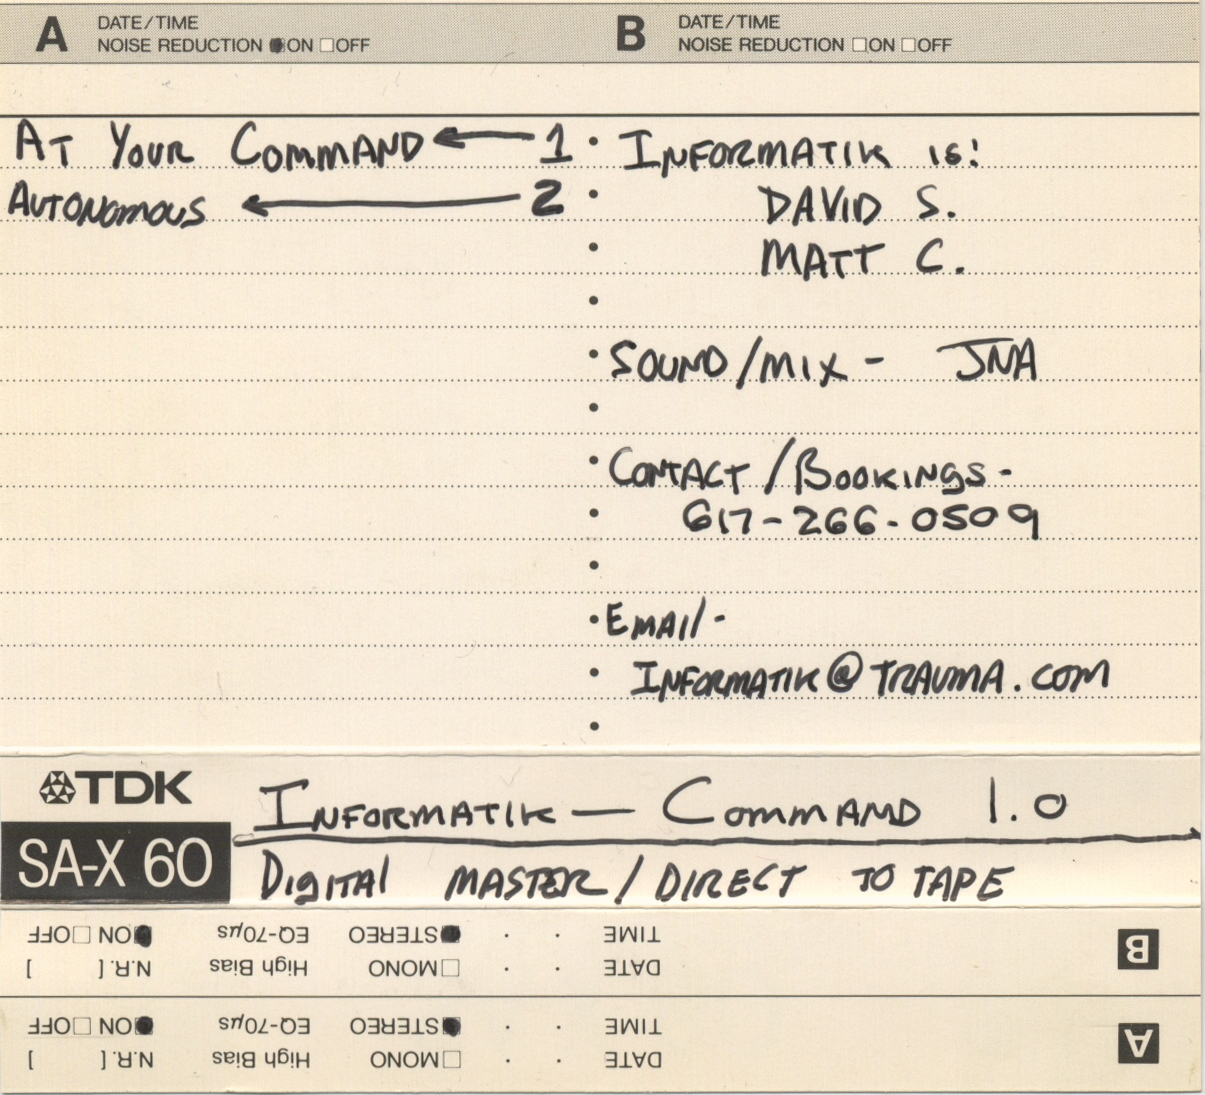 A DATE/TIME B DATE/TIME
NOISE REDUCTION ON OFF NOISE REDUCTION ON OFF
AT YOUR COMMAND 1 INFORMATIK IS:
AUTONOMOUS 2 DAVID S.
MATT C.
SOUND/MIX - JNA
CONTACT/BOOKINGS-
617-266-0509
EMAIL-
INFORMATIK@TRAUMA.COM
TDK INFORMATIK — COMMAND 1.0
SA-X 60 DIGITAL MASTER/DIRECT TO TAPE
A DATE . . MONO High Bias N.R. [ ]
TIME . . STEREO EQ-70µs ON OFF
B DATE . . MONO High Bias N.R. [ ]
TIME . . STEREO EQ-70µs ON OFF